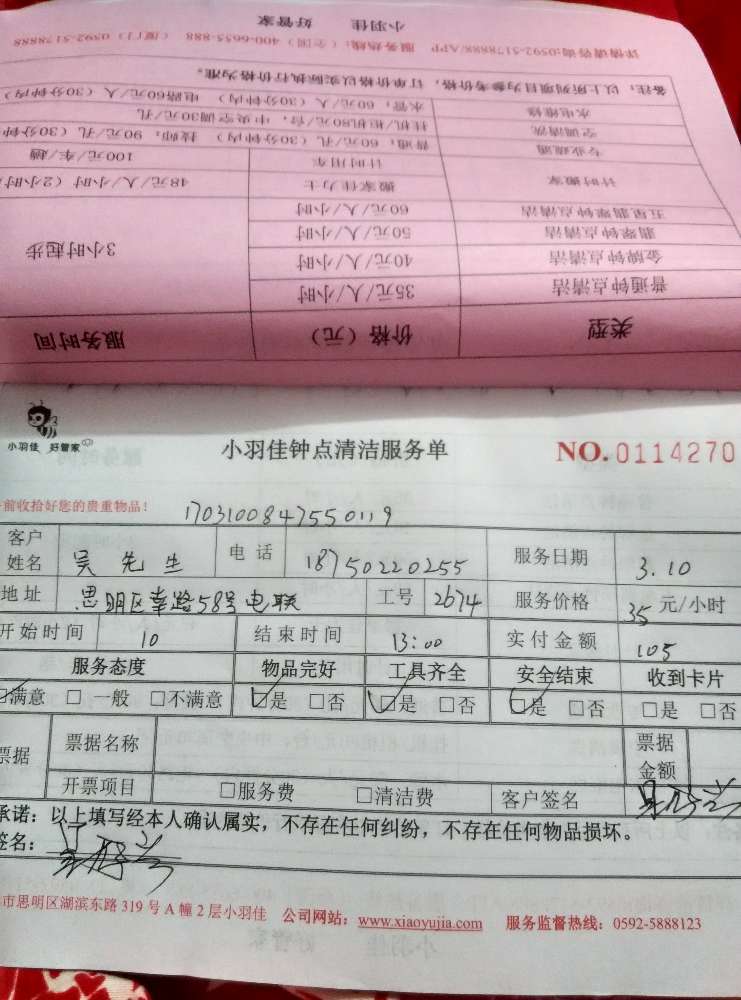 小羽佳 好管家
详情请咨询:0592-5178888/APP 服务热线:(全国)400-6655-888 (厦门)0592-5178888
备注:以上所列项目为参考价格,订单价格以实际执行价格为准。
水电维修 水管:60元/人(30分钟内) 电路60元/人(30分钟内)
空调清洗 挂机/柜机80元/台,中央空调30元/孔
专业疏通 普通:60元/孔(30分钟内) 技师:90元/孔(30分钟
计时用车 100元/车/趟
计时搬家 搬家佳力士 48元/人/小时(2小时
五星翡翠钟点清洁 60元/人/小时
翡翠钟点清洁 50元/人/小时
金牌钟点清洁 40元/人/小时
3小时起步
普通钟点清洁 35元/人/小时
类型 价格(元) 服务时间
小羽佳 好管家
小羽佳钟点清洁服务单
NO.0114270
前收拾好您的贵重物品!
1703100847550119
客户姓名 吴先生 电话 18750220255 服务日期 3.10
地址 思明区 路58号电联 工号 2674 服务价格 35元/小时
开始时间 10 结束时间 13:00 实付金额 105
服务态度 物品完好 工具齐全 安全结束 收到卡片
满意 □一般 □不满意 ☑是 □否 ☑是 □否 ☑是 □否 □是 □否
票据 票据名称 票据金额
开票项目 □服务费 □清洁费 客户签名
承诺:以上填写经本人确认属实,不存在任何纠纷,不存在任何物品损坏。
签名:
市思明区湖滨东路319号A幢2层小羽佳 公司网站:www.xiaoyujia.com 服务监督热线:0592-5888123